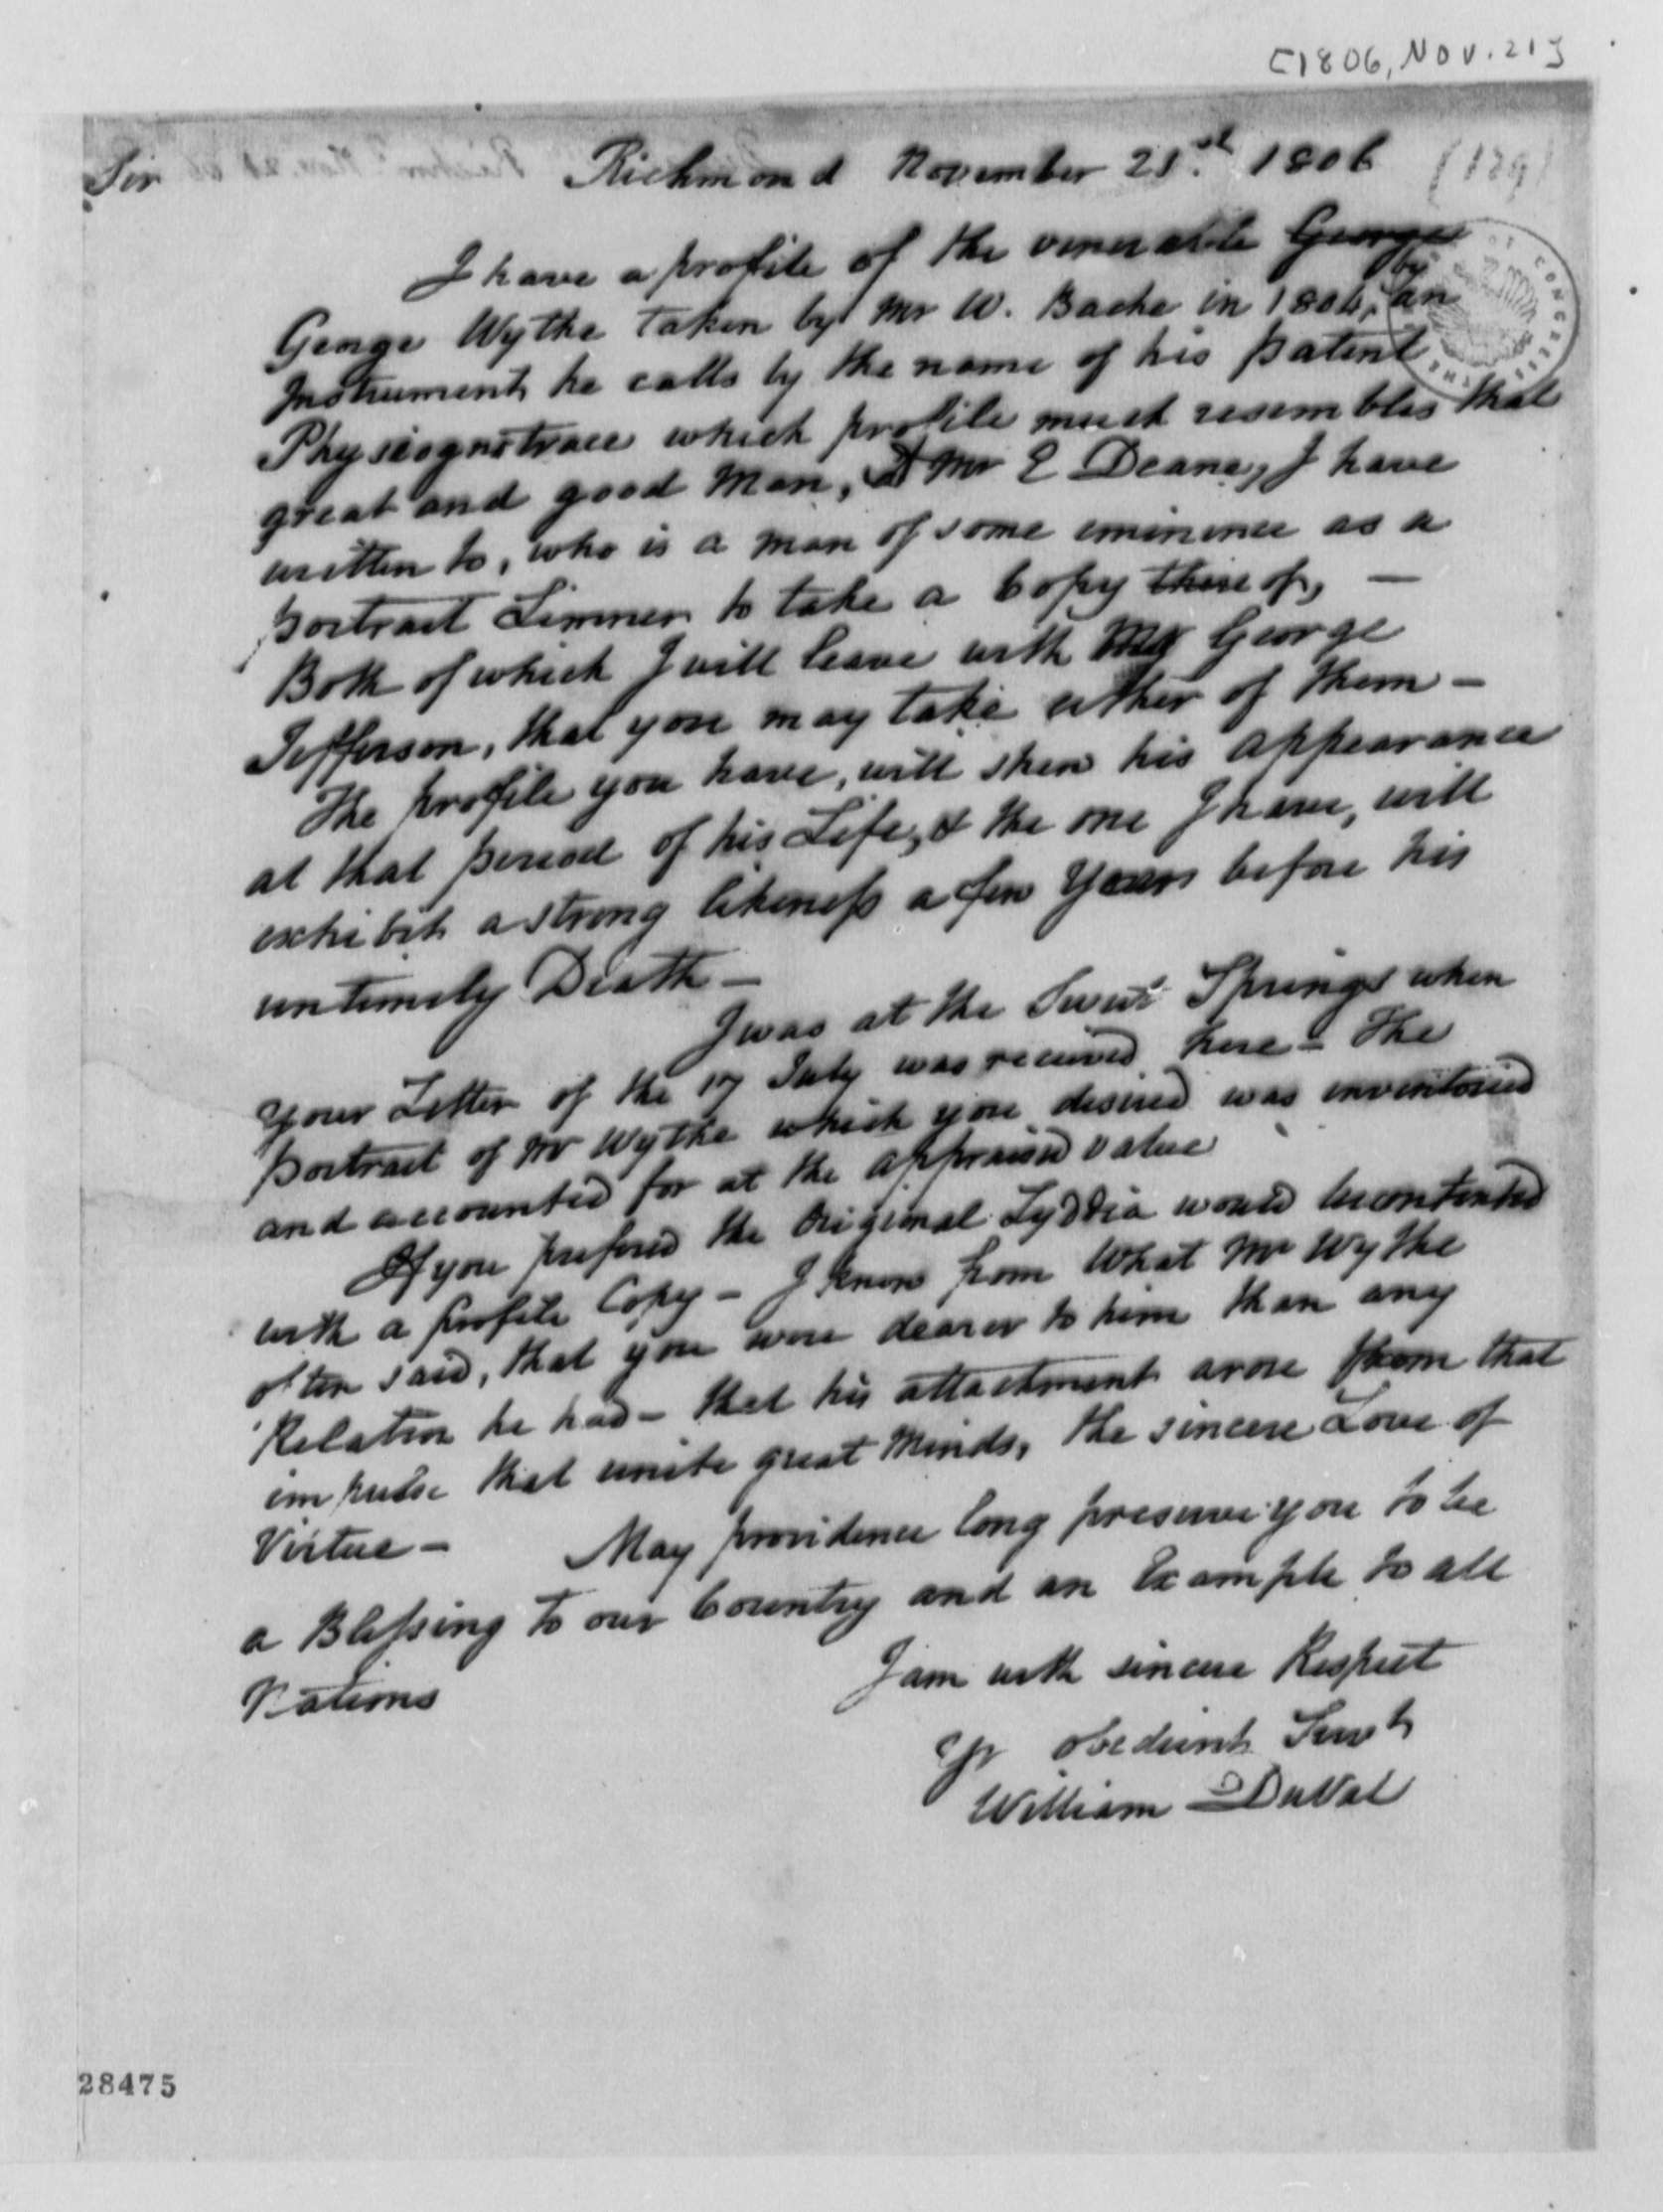 [1806, Nov. 21]
Sir Richmond November 21.st 1806 (129)
I have a profile of the venerable George
by
George Wythe taken by Mr W. Bache in 1804, an
Instrument he calls by the name of his patent
Physiognotrace which profile much resembles that
great and good Man, Mr E Deane, I have
written to, who is a man of some eminence as a
portrait Limner to take a Copy thereof, —
Both of which I will leave with Mr George
Jefferson, that you may take either of them –
The profile you have, will shew his appearance
at that period of his Life, & the one I have, will
exhibit a strong likeness a few Years before his
untimely Death –
I was at the Sweet Springs when
your Letter of the 17 July was received here – The
portrait of Mr Wythe which you desired was inventoried
and accounted for at the appraised value
If you prefered the Original Lyddia would be contented
with a profile Copy – I know from What Mr Wythe
often said, that you were dearer to him than any
Relation he had – that his attachment arose from that
impulse that unite great Minds, the sincere Love of
Virtue – May providence long preserve you to be
a Blessing to our Country and an Example to all
Nations I am with sincere Respect
Yr obedient Servt
William DuVal
28475